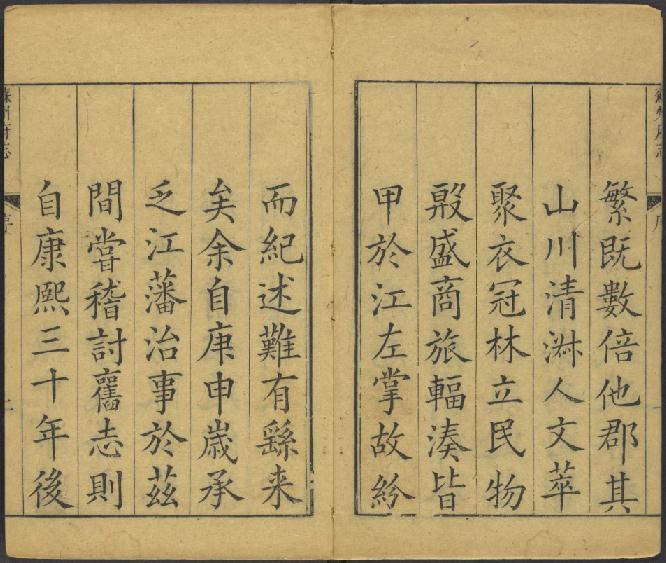 繁既數倍他郡其
山川清淋人文萃
聚衣冠林立民物
殷盛商旅輻湊皆
甲於江左掌故紛
而紀述難有繇来
矣余自庚申歲承
乏江藩治事於茲
間嘗稽討舊志則
自康熙三十年後
蘇州府志
序